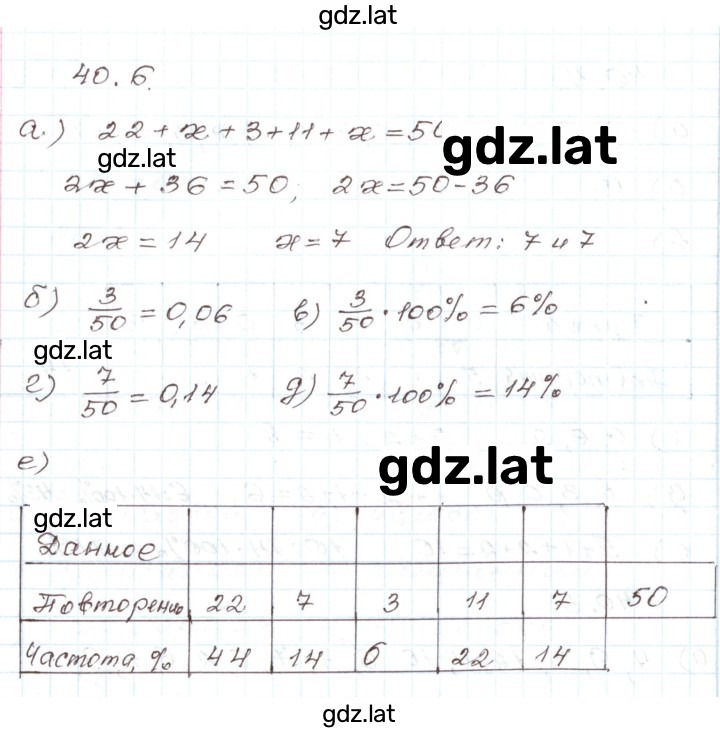 gdz.lat
40.6.
а.) 22 + x + 3 + 11 + x = 50
gdz.lat
gdz.lat
2x + 36 = 50; 2x = 50 - 36
2x = 14 x = 7 Ответ: 7 и 7
б) 3/50 = 0,06 в) 3/50 · 100% = 6%
gdz.lat
г) 7/50 = 0,14 д) 7/50 · 100% = 14%
е)
gdz.lat
gdz.lat
Данное
Повторению 22 7 3 11 7 50
Частота, % 44 14 6 22 14
gdz.lat